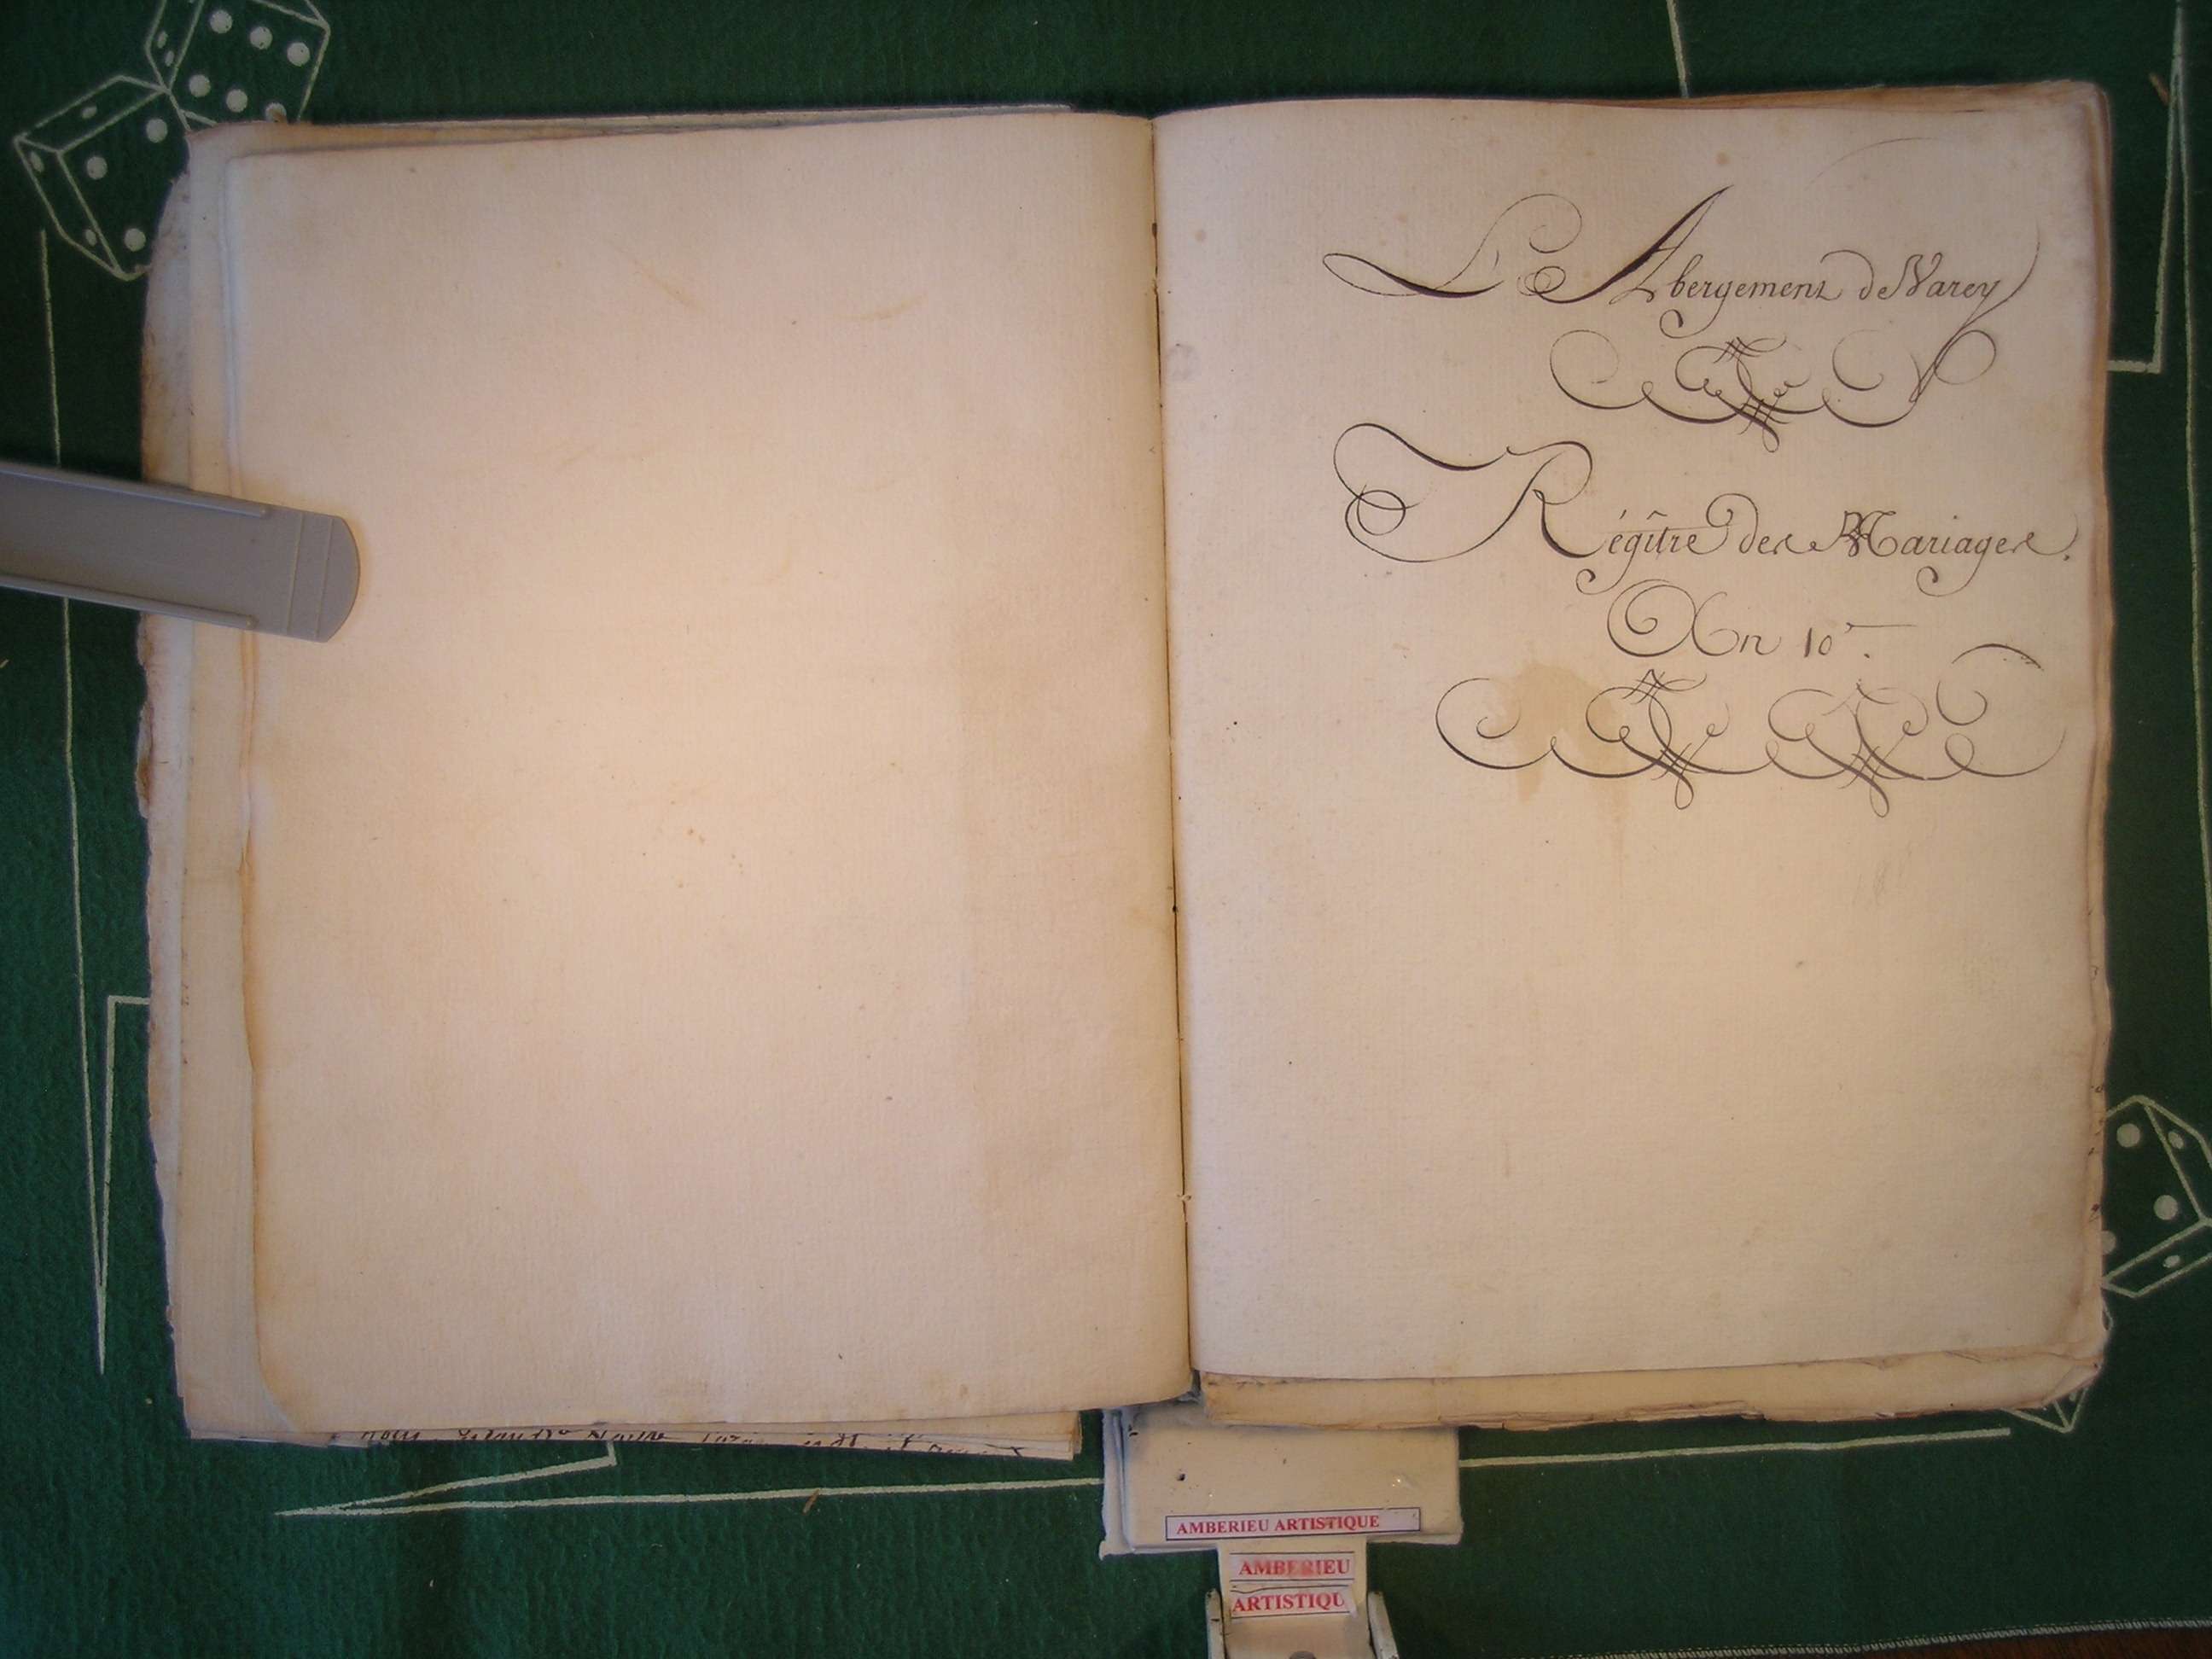 L'Abergement de Varey
Régître des Mariages.
An 10.
AMBERIEU ARTISTIQUE
AMBERIEU
ARTISTIQU